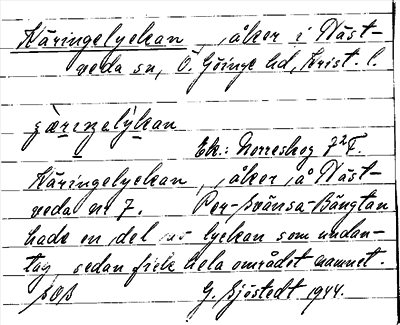 Käringelyckan, åker i Näst-
veda sn, Ö. Göinge hd, Krist. l.
Ek.: Norreskog 72F.
Käringelyckan, åker å Näst-
veda nr 7. Per-Svänsa-Bängtan
hade en del av lyckan som undan-
tag, sedan fick hela området namnet.
G. Sjöstedt 1944.